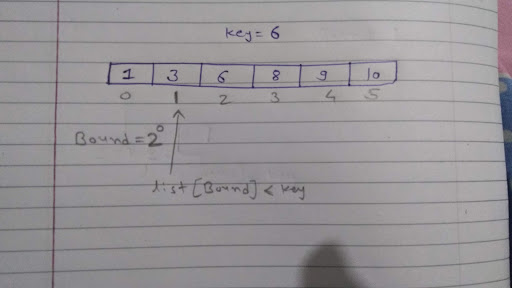 key= 6
1 3 6 8 9 10
0 1 2 3 4 5
Bound = 2⁰
list [Bound] < key